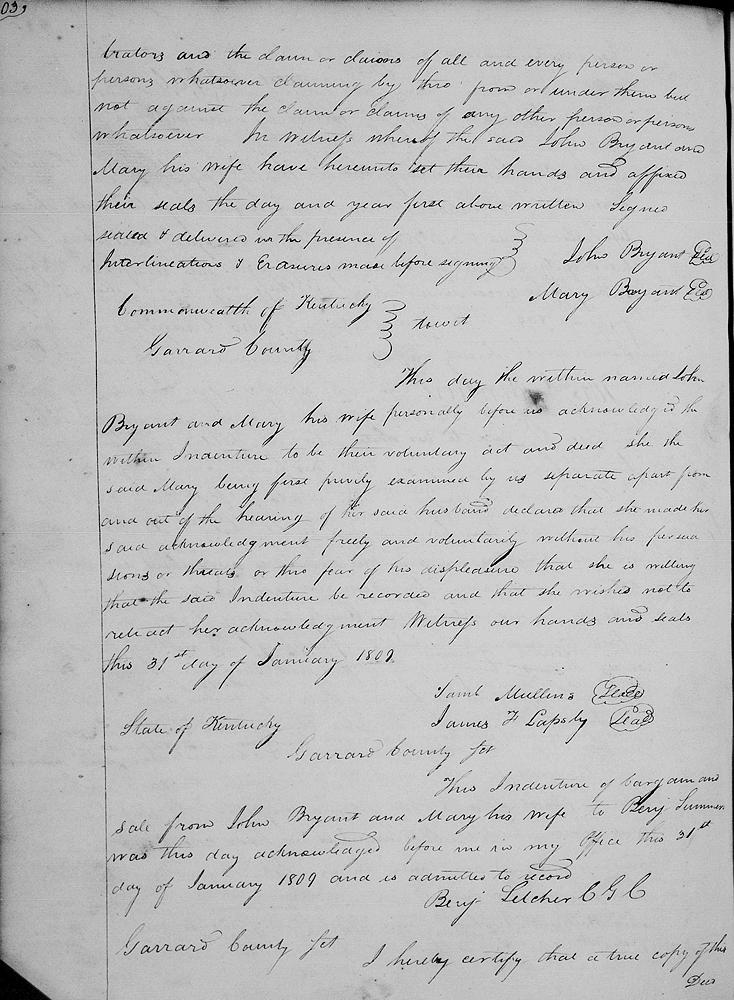 03,
trators and the claim or claims of all and every person or
persons whatsoever claiming by thro from or under them but
not against the claim or claims of any other person or persons
whatsoever In Witness whereof the said John Bryant and
Mary his wife have hereunto set their hands and affixed
their seals the day and year first above written Signed
sealed & delivered in the presence of
Interlineations & Erasures made before signing
John Bryant Seal
Mary Bryant Seal
Commonwealth of Kentucky
Garrard County
towit
This day the within named John
Bryant and Mary his wife personally before us acknowledged the
within Indenture to be their voluntary act and deed she the
said Mary being first privily examined by us separate apart from
and out of the hearing of her said husband declares that she made her
said acknowledgment freely and voluntarily without his persua
sions or threats or thro fear of his displeasure that she is willing
that the said Indenture be recorded and that she wishes not to
retract her acknowledgment Witness our hands and seals
this 31st day of January 1809
Saml Mullins Seal
James F Lapsly Seal
State of Kentucky
Garrard County Sct
This Indenture of bargain and
sale from John Bryant and Mary his wife to Benj
was this day acknowledged before me in my Office this 31st
day of January 1809 and is admitted to record
Benj Letcher C G C
Garrard County Sct
I hereby certify that a true copy of this
Deed